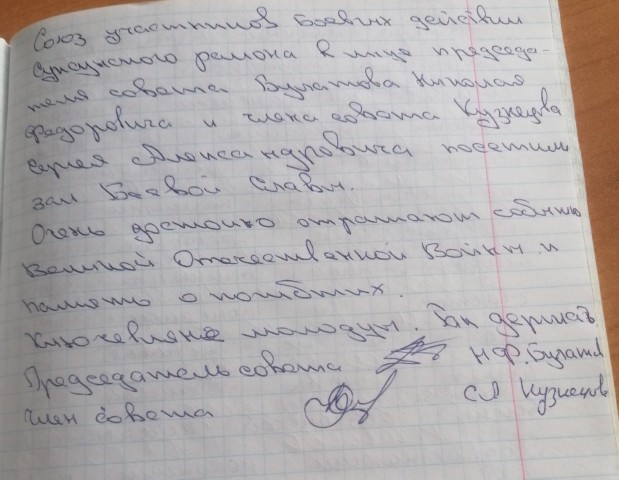 Союз участников Боевых действии
Сунского района в лице председа-
теля совета Булатова Николая
Федоровича и члена совета Кузнецова
Сергея Александровича посетили
зал Боевой Славы.
Очень достойно отражают событию
Великой Отечественной Войны и
память о погибших.
Ключевляне молодцы. Так держать
Председатель совета Н.Ф. Булатов
Член совета С А Кузнецов